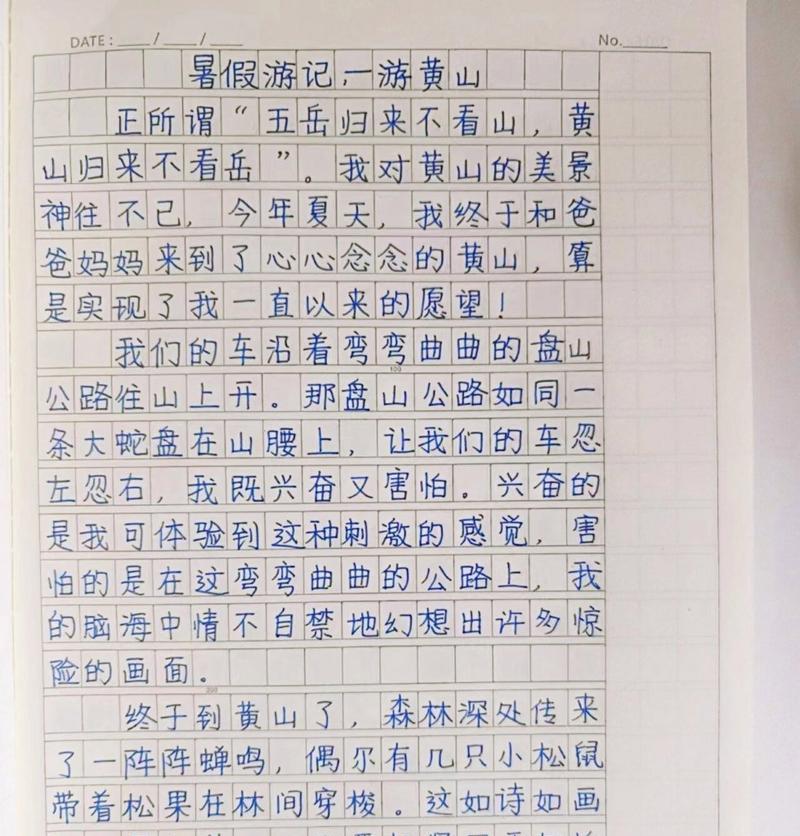 DATE: ___/___/___ No.____
暑假游记,一游黄山
正所谓“五岳归来不看山,黄
山归来不看岳”。我对黄山的美景
神往不已,今年夏天,我终于和爸
爸妈妈来到了心心念念的黄山,算
是实现了我一直以来的愿望!
我们的车沿着弯弯曲曲的盘山
100
公路往山上开。那盘山公路如同一
条大蛇盘在山腰上,让我们的车忽
左忽右,我既兴奋又害怕。兴奋的
是我可体验到这种刺激的感觉,害
怕的是在这弯弯曲曲的公路上,我
的脑海中情不自禁地幻想出许多惊
险的画面。
200
终于到黄山了,森林深处传来
了一阵阵蝉鸣,偶尔有几只小松鼠
带着松果在林间穿梭。这如诗如画